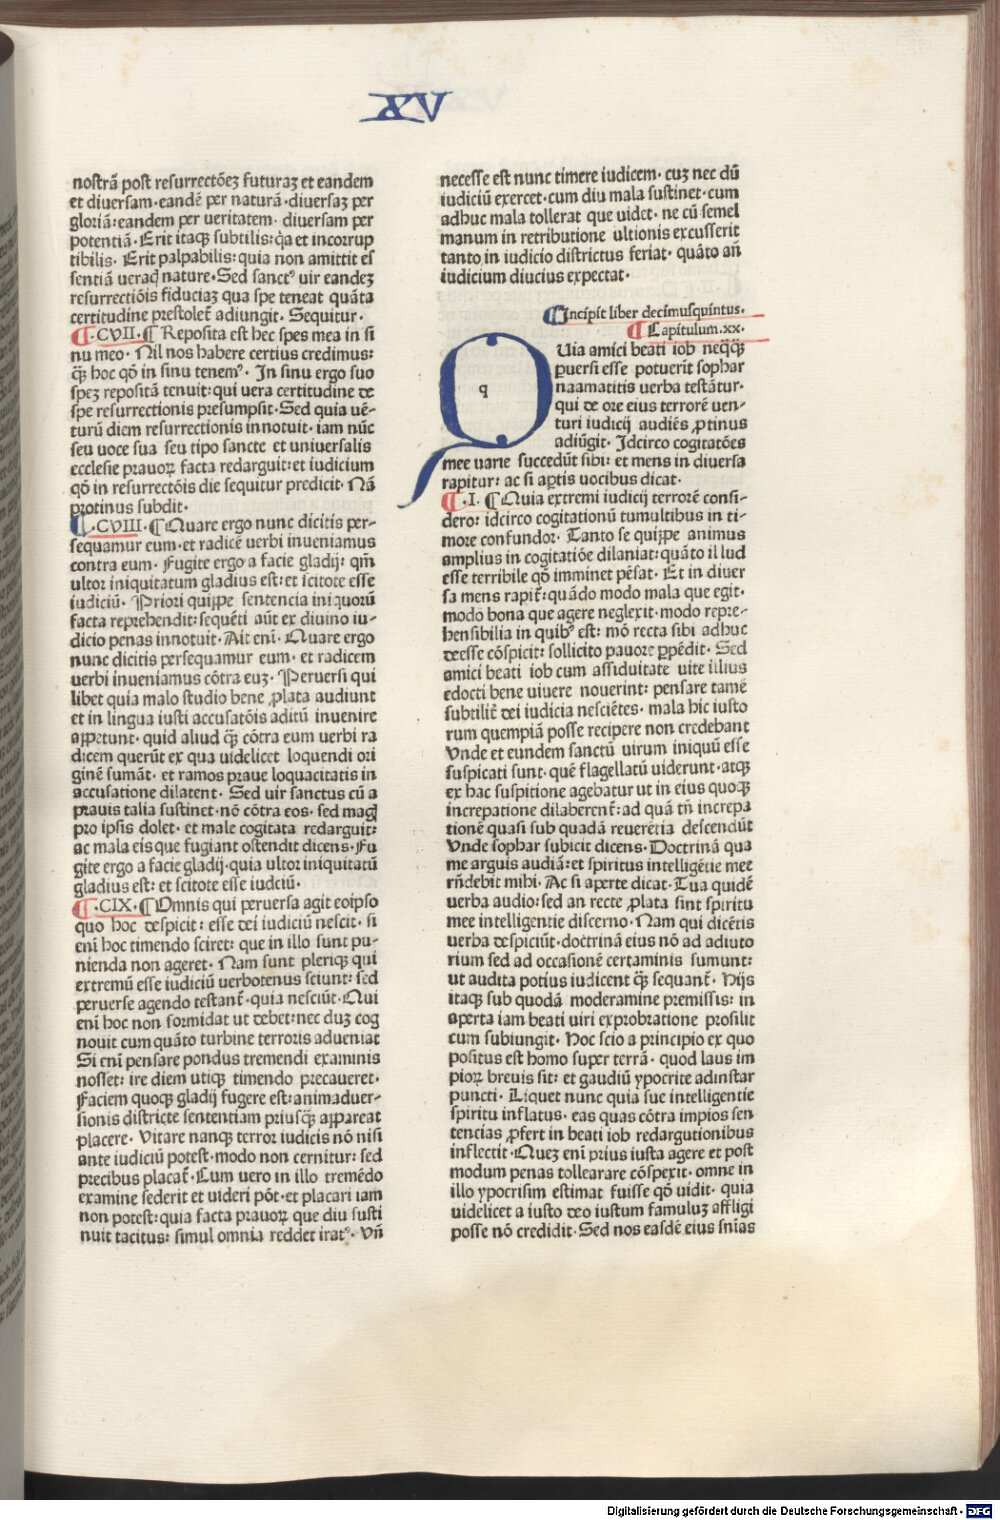 XV
nostrā post resurrectōeꝫ futuraꝫ et eandem
et diuersam·eandē per naturā·diuersaꝫ per
gloriā:eandem per veritatem· diuersam per
potentiā·Erit itaqꝫ subtilis:q̄a et incorrup
tibilis· Erit palpabilis:quia non amittit es
sentiā veraqꝫ nature·Sed sanctꝰ uir eandeꝫ
resurrectiōis fiduciaꝫ qua spe teneat quāta
certitudine prestolet̄ adiungit· Sequitur·
¶·CVII·¶Reposita est hec spes mea in si
nu meo· Nil nos habere certius credimus:
qꝫ̄ hoc qō in sinu tenemꝰ· In sinu ergo suo
speꝫ repositā tenuit:qui vera certitudine de
spe resurrectionis presumpsit·Sed quia vē-
turū diem resurrectionis innotuit·iam nūc
seu uoce sua seu tipo sancte et uniuersalis
ecclesie prauoꝝ facta redarguit:et iudicium
qō in resurrectōis die sequitur predicit· Nā
protinus subdit·
¶·CVIII·¶Quare ergo nunc dicitis per-
sequamur eum·et radicē verbi inueniamus
contra eum· Fugite ergo a facie gladij: qm̄
ultor iniquitatum gladius est:et scitote esse
iudiciū· Priori quippe sentencia iniquorū
facta reprehendit:sequēti aūt ex diuino iu-
dicio penas innotuit·Ait enī·Quare ergo
nunc dicitis persequamur eum· et radicem
verbi inueniamus cōtra euꝫ· Peruersi qui
libet quia malo studio bene ꝓlata audiunt
et in lingua iusti accusatōis aditū inuenire
appetunt· quid aliud qꝫ̄ cōtra eum verbi ra
dicem querūt ex qua videlicet loquendi ori
ginē sumāt· et ramos praue loquacitatis in
accusatione dilatent· Sed uir sanctus cū a
prauis talia sustinet·nō cōtra eos· sed magꝭ
pro ipsis dolet· et male cogitata redarguit:
ac mala eis que fugiant ostendit dicens·Fu
gite ergo a facie gladij·quia ultor iniquitatū
gladius est: et scitote esse iudciū·
¶·CIX·¶Omnis qui peruersa agit eoipso
quo hoc despicit: esse dei iudiciū nescit· si
enī hoc timendo sciret: que in illo sunt pu-
nienda non ageret· Nam sunt pleriqꝫ qui
extremū esse iudiciū verbotenus sciunt: sed
peruerse agendo testant̄·quia nesciūt·Qui
enī hoc non formidat ut debet:nec duꝫ cog
nouit cum quāto turbine terroris adueniat
Si enī pensare pondus tremendi examinis
nosset: ire diem utiqꝫ timendo precaueret·
Faciem quoqꝫ gladij fugere est:animaduer-
sionis districte sententiam priusqꝫ̄ appareat
placere· Vitare nanqꝫ terror iudicis nō nisi
ante iudiciū potest·modo non cernitur: sed
precibus placat̄·Cum uero in illo tremēdo
examine sederit et uideri pōt·et placari iam
non potest:quia facta prauoꝝ que diu susti
nuit tacitus: simul omnia reddet iratꝰ· Vn̄
necesse est nunc timere iudicem· cuꝫ nec dū
iudiciū exercet·cum diu mala sustinet·cum
adhuc mala tollerat que uidet· ne cū semel
manum in retributione ultionis excusserit
tanto in iudicio districtus feriat· quāto an̄
iudicium diucius expectat·
¶Incipit liber decimusquintus·
¶Capitulum·xx·
q
Via amici beati iob neqꝫqꝫ̄
puersi esse potuerit sophar
naamatitis verba testātur·
qui de ore eius terrorē uen-
turi iudicij audiēs ꝓtinus
adiūgit· Idcirco cogitatōes
mee uarie succedūt sibi: et mens in diuersa
rapitur: ac si aptis uocibus dicat·
¶·I·¶Quia extremi iudicij terrorē consi-
dero: idcirco cogitationū tumultibus in ti-
more confundor· Tanto se quippe animus
amplius in cogitatiōe dilaniat: quāto illud
esse terribile qō imminet pēsat· Et in diuer
sa mens rapit̄:quādo modo mala que egit·
modo bona que agere neglexit·modo repre-
hensibilia in quibꝰ est: mō recta sibi adhuc
deesse cōspicit: sollicito pauore ꝑpēdit· Sed
amici beati iob cum assiduitate uite illius
edocti bene uiuere nouerint: pensare tamē
subtilit̄ dei iudicia nesciētes· mala hic iusto
rum quempiā posse recipere non credebant
Vnde et eundem sanctū uirum iniquū esse
suspicati sunt· quē flagellatū uiderunt·atqꝫ
ex hac suspitione agebatur ut in eius quoqꝫ
increpatione dilaberent̄:ad quā tn̄ increpa
tionē quasi sub quadā reuerētia descendūt
Vnde sophar subicit dicens·Doctrinā qua
me arguis audiā:et spiritus intelligētie mee
rn̄debit mihi· Ac si aperte dicat·Tua quidē
verba audio:sed an recte ꝓlata sint spiritu
mee intelligentie discerno· Nam qui dicētis
verba despiciūt·doctrinā eius nō ad adiuto
rium sed ad occasionē certaminis sumunt:
ut audita potius iudicent qꝫ̄ sequant̄· Hijs
itaqꝫ sub quodā moderamine premissis: in
aperta iam beati uiri exprobratione prosilit
cum subiungit· Hoc scio a principio ex quo
positus est homo super terrā· quod laus im
pioꝝ breuis sit: et gaudiū ypocrite adinstar
puncti· Liquet nunc quia sue intelligentie
spiritu inflatus· eas quas cōtra impios sen
tencias ꝓfert in beati iob redargutionibus
inflectit·Queꝫ enī prius iusta agere et post
modum penas tollearare cōspexit·omne in
illo ypocrisim estimat fuisse qō uidit· quia
uidelicet a iusto deo iustum famuluꝫ affligi
posse nō credidit·Sed nos easdē eius sn̄ias
Digitalisierung gefördert durch die Deutsche Forschungsgemeinschaft - DFG